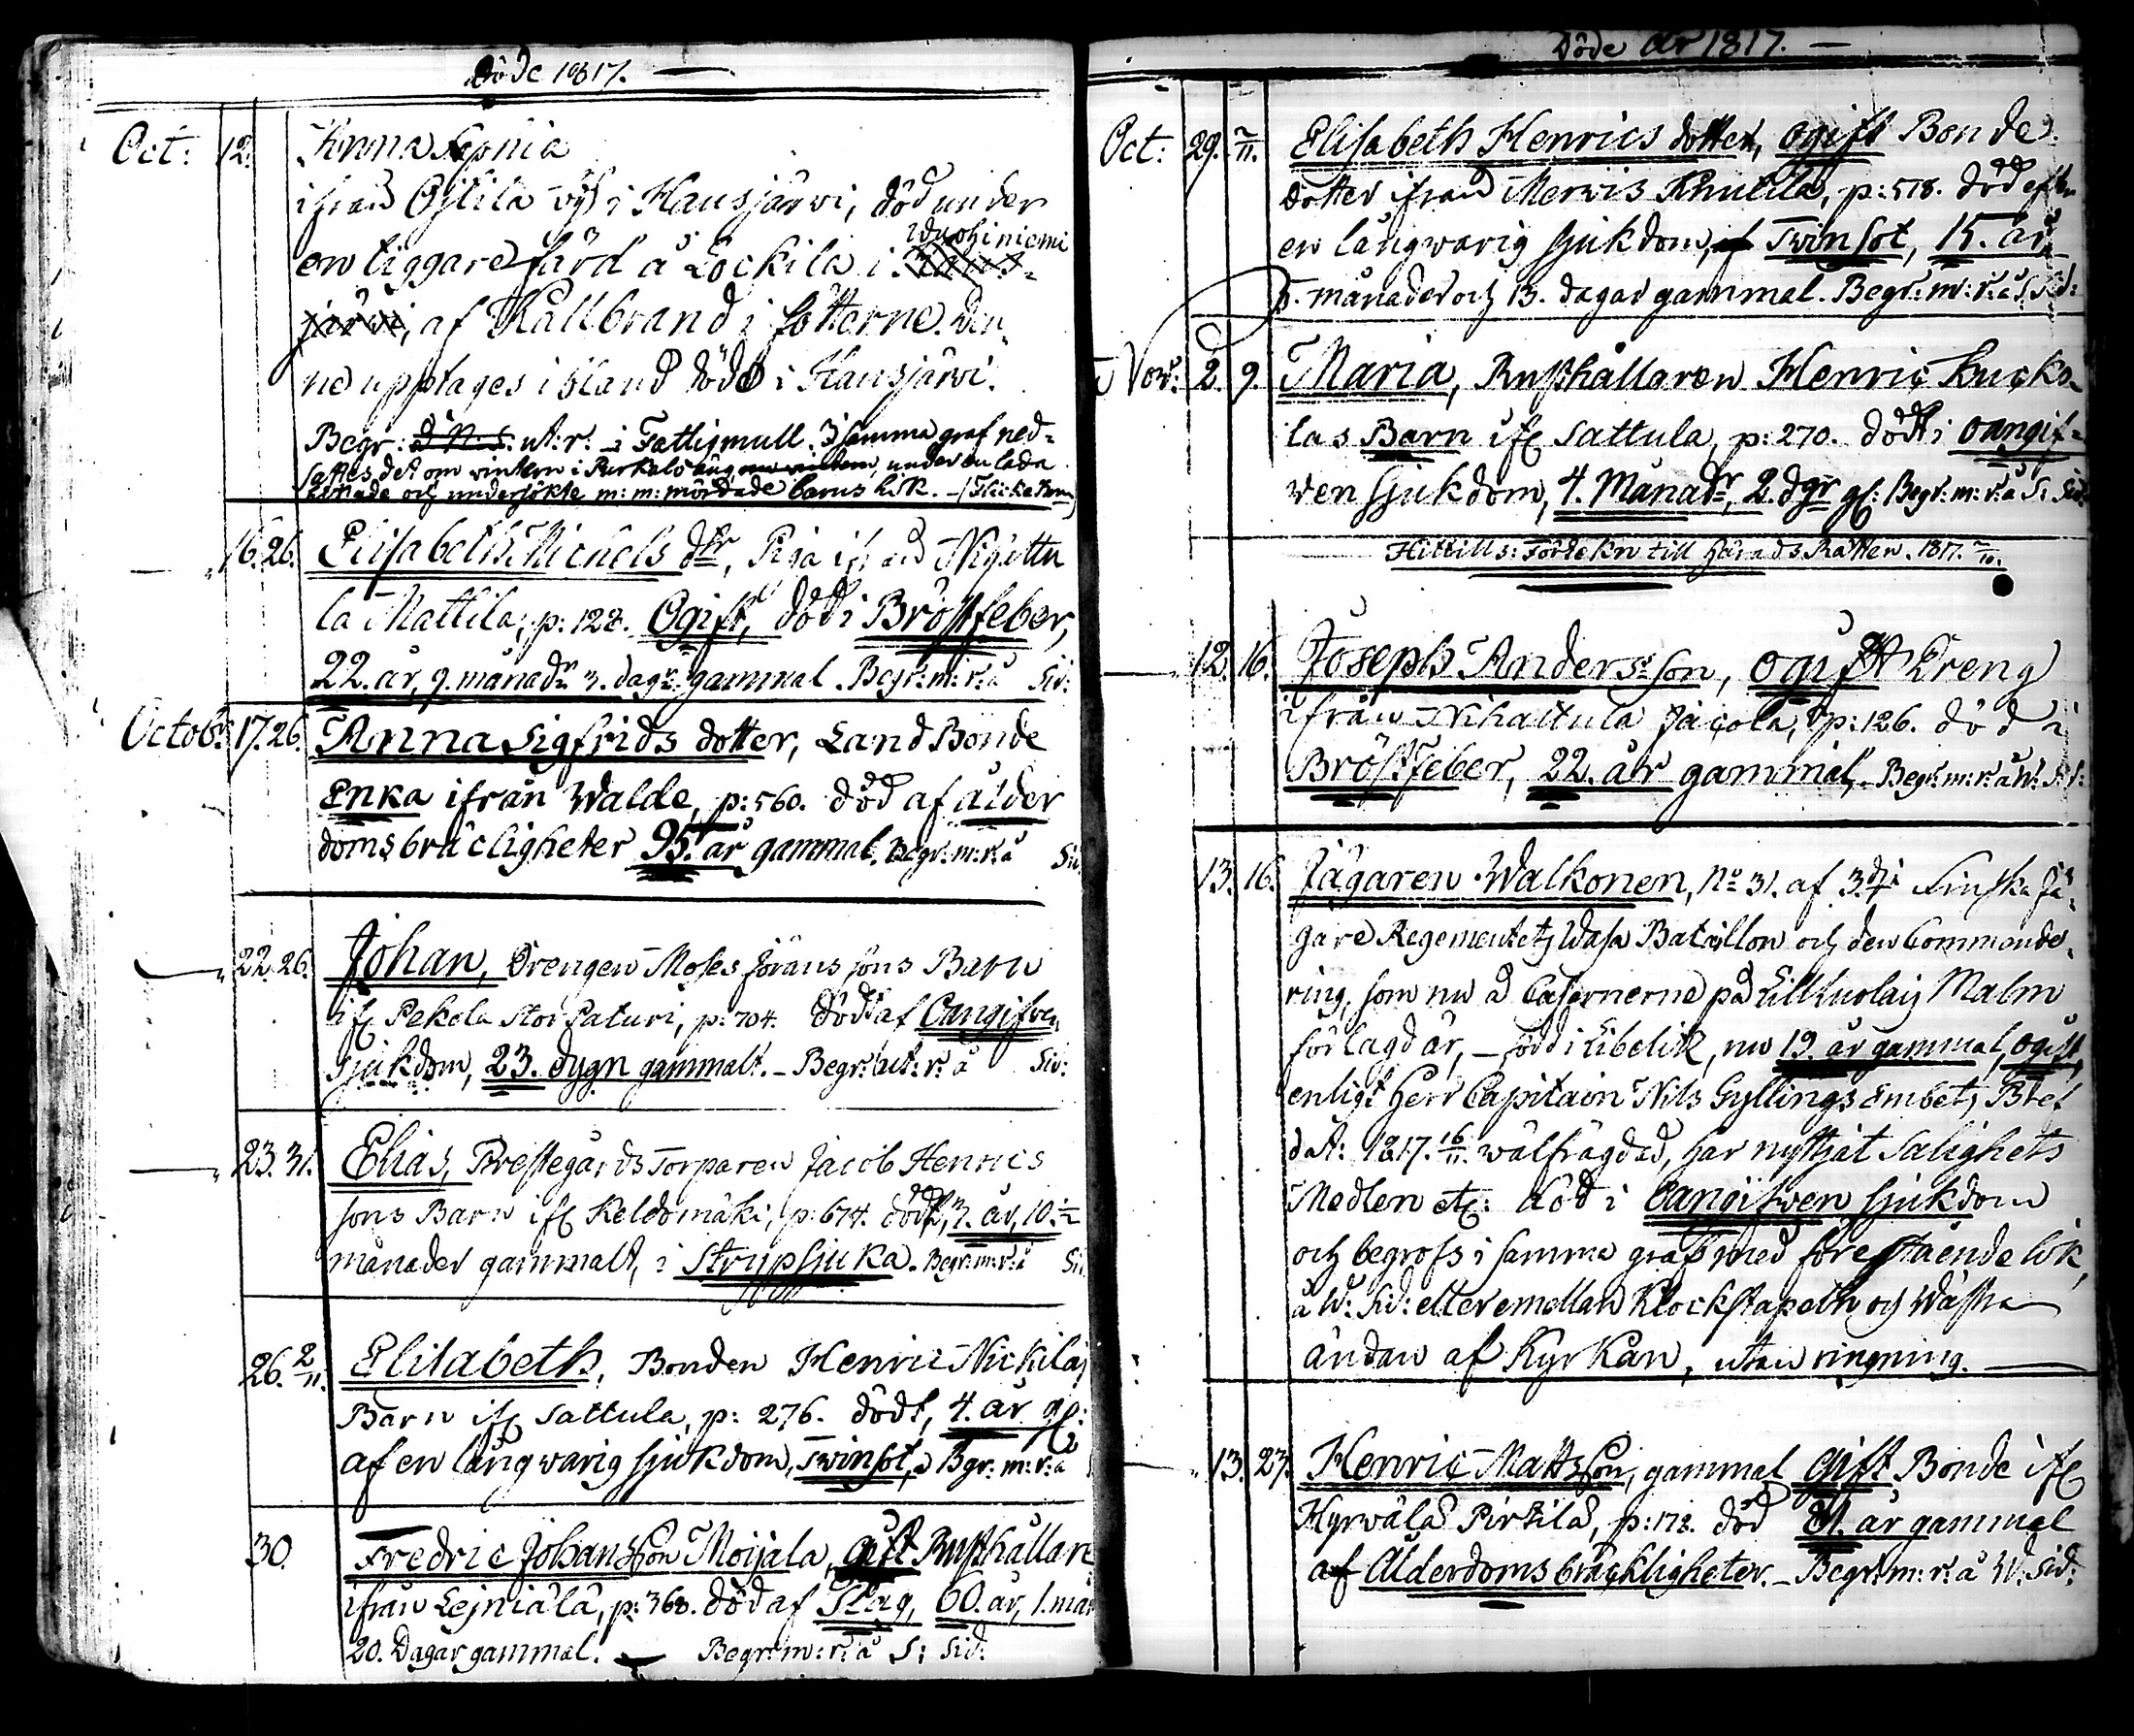 Döde 1817.
Oct: 12. Anna Sophia
ifrån Oitila by i Hausjärvi, död under
en tiggare färd å Lockila i Wuohiniemi
järvi, af Kallbrand i fötterne. Den-
ne upptages ibland döde i Hausjärvi.
Begr: ut: r: i Fattigmull. I samma graf ned-
sattes det om vintern i Purkals äng under en lada
och undersökte m: m: mördade barns Lik.
16. 26. Elisabeth Michels dtr, Piga ifrån Nihattu
la Mattila, p: 128. Ogift, död i Bröstfeber,
22. år, 9. månadr 3. dagr gammal. Begr: m: r: å Sid:
Octob: 17. 26. Anna Sigfrids dotter, Land Bonde
Enka ifrån Walde, p: 560. död af ålder
doms bräcligheter 95. år gammal. Begr: m: r: å Sid:
22. 26. Johan, Drengen Moses Jörans sons Barn
ifr Pekola Stor Paturi, p: 704. dödt af Oangifven
sjukdom, 23. dygn gammalt. - Begr: ut: r: å Sid:
23. 31. Elias, Prestegårds Torparen Jacob Henrics
sons Barn ifr Keldomäki, p: 674. dödt, 3. år, 10. ½
månader gammalt, i Strypsjuka. Begr: m: r: å Sid:
26. 2/11. Elisabeth, Bonden Henric Nickilas
Barn ifr Sattula, p: 276. dödt, 4. år gl:
af en långwarig sjukdom, Twinsot, Bgr: m: r: å
30. Fredric Johansson Moijala, gift Rusthållare
ifrån Lejniälä, p: 368. död af Slag, 60. år, 1. mån
20. Dagar gammal. Begr: m: r: å S: Sid:
Döde år 1817.
Oct: 29. 2/11. Elisabeth Henrics dotter, ogift Bonde
dotter ifrån Merwis Knutila, p: 518. död efter
en långwarig sjukdom, af Twinsot, 15. år
5. månader och 13. dagar gammal. Begr: m: r: å S: Sid:
Nov: 2. 9. Maria, Rusthållaren Henric Kucko-
las Barn ifr Sattula, p: 270. dödt i oangif-
wen sjukdom, 4. Månadr, 2. dgr gl: Begr: m: r: å S: Sid:
Hittills: Förtekn till Härads Rätten. 1817.
12. 16. Joseph Anders son, ogift Dreng
ifrån Nihattula Jacola, p: 126. död i
Bröstfeber, 22. år gammal, Begr: m: r: å W: Sid:
13. 16. Jägaren Walkonen, No 31. af 3.dje Finska Jä-
gare Regementets Wasa Bataillon och den Commende-
ring, som nu å Casernerne på Lillluolais Malm
förlagd är, - född i Libelitz, nu 19. år gammal, ogift,
enligt Herr Capitain Nils Gyllings Embets Bref
dat: 1817. 16/11. wälfrägdad, har nyttjat Salighets
Medlen etc: död i Oangifwen sjukdom
och begrofs i samma graf med förestående lik,
å W: Sid: eller emellan Klockstapeln och Wästra
ändan af Kyrkan, utan ringning.
13. 23. Henric Matts son, gammal gift Bonde ifr
Hyrwälä Pirtilä, p: 178. död 81. år gammal
af Ålderdoms bräckligheter. - Begr: m: r: å W: Sid: